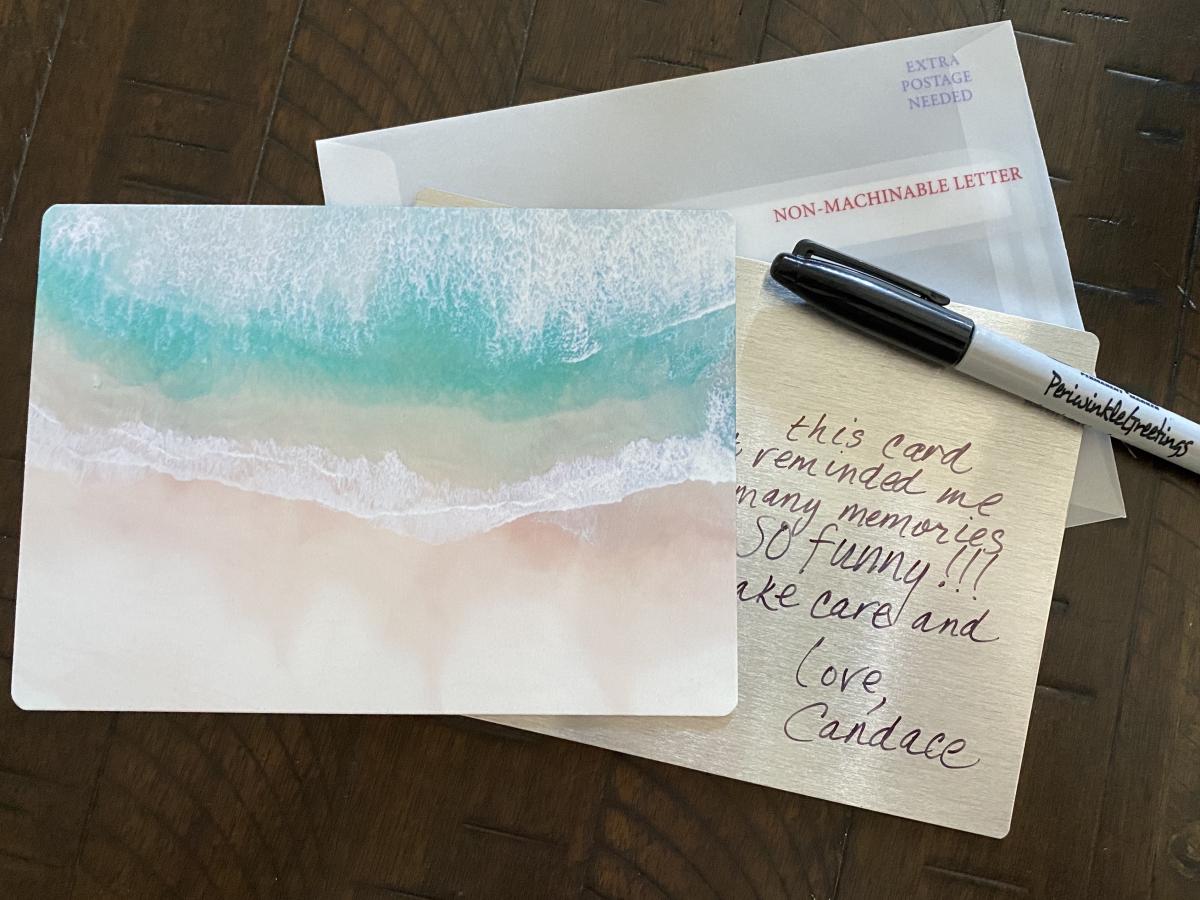 EXTRA
POSTAGE
NEEDED
NON-MACHINABLE LETTER
PeriwinkleGreetings
this card
reminded me
many memories
SO funny!!!
ake care and
Love,
Candace